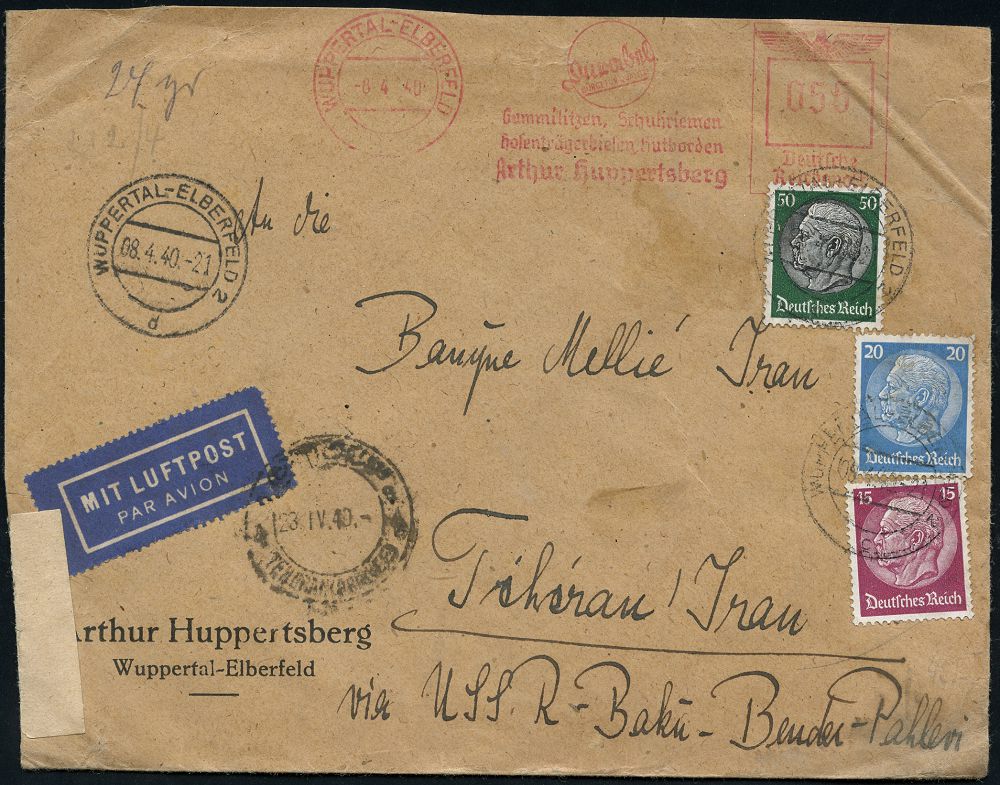 24 gr
WUPPERTAL-ELBERFELD
-8.4.40
Gummilitzen, Schuhriemen
Hosenträgerbiesen, Hutborden
Arthur Huppertsberg
055
Deutsche
Reichspost
WUPPERTAL-ELBERFELD 2
08.4.40.-21
d
An die
50 50
Deutsches Reich
Banque Mellié Iran
20 20
Deutsches Reich
MIT LUFTPOST
PAR AVION
23.IV.40.-
15 15
Deutsches Reich
Téhéran / Iran
Arthur Huppertsberg
Wuppertal-Elberfeld
via USS.R-Baku-Bender-Pahlevi